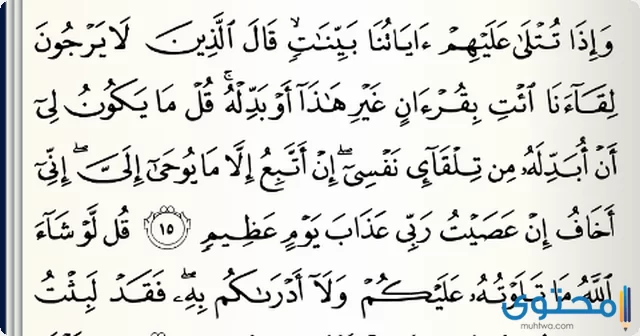 وَإِذَا تُتۡلَىٰ عَلَيۡهِمۡ ءَايَاتُنَا بَيِّنَٰتٖ قَالَ ٱلَّذِينَ لَا يَرۡجُونَ
لِقَآءَنَا ٱئۡتِ بِقُرۡءَانٍ غَيۡرِ هَٰذَآ أَوۡ بَدِّلۡهُۚ قُلۡ مَا يَكُونُ لِيٓ
أَنۡ أُبَدِّلَهُۥ مِن تِلۡقَآيِٕ نَفۡسِيٓۖ إِنۡ أَتَّبِعُ إِلَّا مَا يُوحَىٰٓ إِلَيَّۖ إِنِّيٓ
أَخَافُ إِنۡ عَصَيۡتُ رَبِّي عَذَابَ يَوۡمٍ عَظِيمٖ ١٥ قُل لَّوۡ شَآءَ
ٱللَّهُ مَا تَلَوۡتُهُۥ عَلَيۡكُمۡ وَلَآ أَدۡرَىٰكُم بِهِۦۖ فَقَدۡ لَبِثۡتُ
محتوى
muhtwa.com